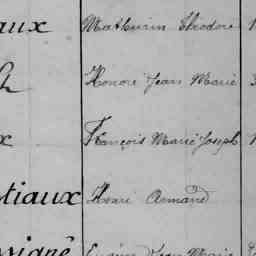 aux Mathurin Théodore
h Honoré Jean Marie
x François Marie Joseph
tiaux Henri Armand
ssigné Eugène Jean Marie